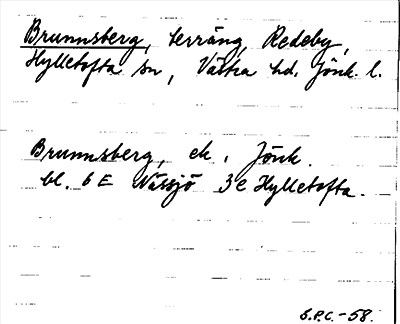 Brunnsberg, terräng, Redeby,
Hylletofta sn, Västra hd. Jönk. l.
Brunnsberg, ek. Jönk.
bl. 6 E Nässjö 3e Hylletofta.
S.P.C.-58.